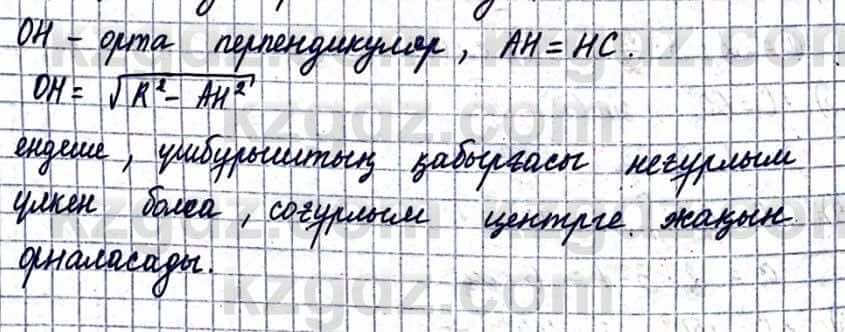 OH - орта перпендикуляр, AH = HC.
OH = √R² - AH²
ендеше, үшбұрыштың қабырғасы неғұрлым
үлкен болса, соғұрлым центрге жақын
орналасады.
kzgdz.com